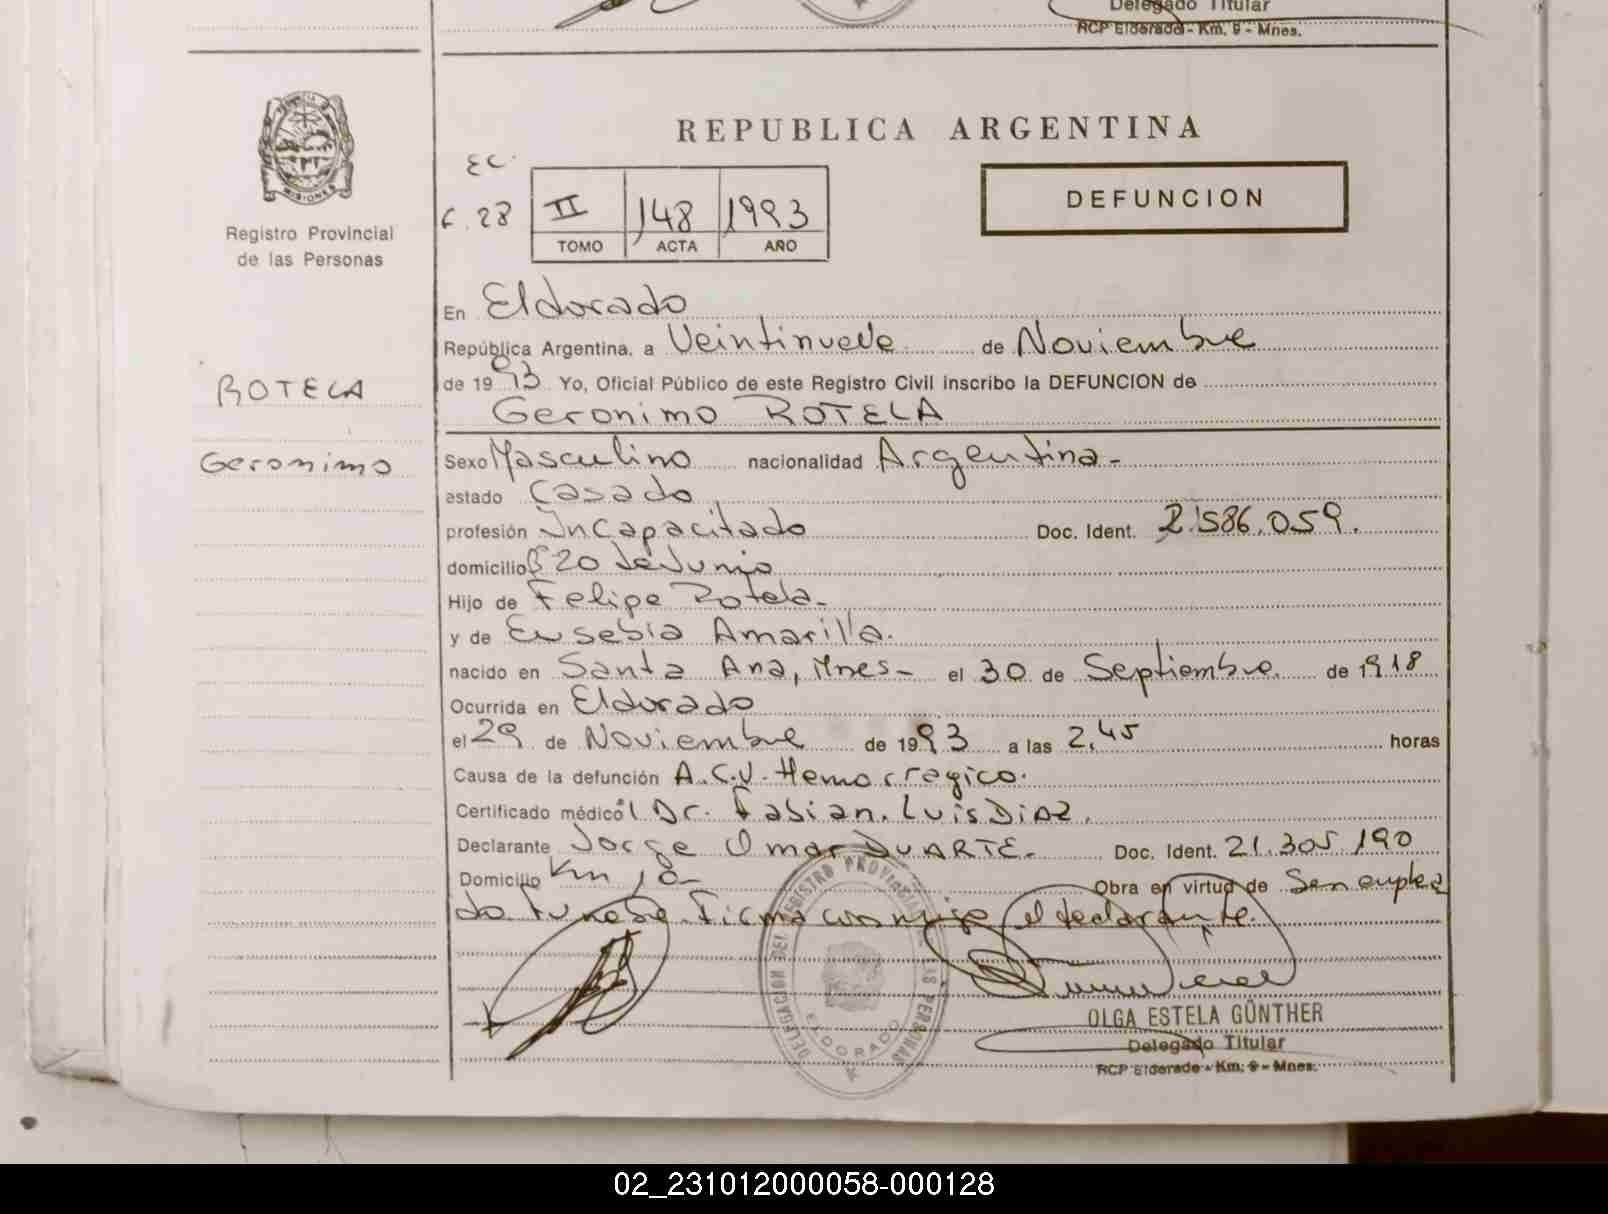 Delegado Titular
RCP Eldorado - Km. 9 - Mnes.
PROVINCIA DE MISIONES
Registro Provincial
de las Personas
REPUBLICA ARGENTINA
EC.
F. 28
II 148 1993
TOMO ACTA AÑO
DEFUNCION
En Eldorado
República Argentina, a Veintinueve de Noviembre
de 1993 Yo, Oficial Público de este Registro Civil inscribo la DEFUNCION de
Geronimo ROTELA
ROTELA
Geronimo
Sexo Masculino nacionalidad Argentina-
estado Casado
profesión Incapacitado Doc. Ident. 2.586.059.
domicilio B 20 de Junio
Hijo de Felipe Rotela-
y de Eusebia Amarilla.
nacido en Santa Ana, Mnes- el 30 de Septiembre de 1918
Ocurrida en Eldorado
el 29 de Noviembre de 1993 a las 2,45 horas
Causa de la defunción A.C.V. Hemorragico.
Certificado médico Dr. Fabian. Luis DIAZ.
Declarante Jorge Omar DUARTE- Doc. Ident. 21.305.190
Domicilio Km 10- Obra en virtud de Ser emplea
do Funebre. Firma conmigo el declarante.
DELEGACION DEL REGISTRO PROVINCIAL DE LAS PERSONAS
ELDORADO
OLGA ESTELA GÜNTHER
Delegado Titular
RCP Eldorado - Km. 9 - Mnes.
02_231012000058-000128